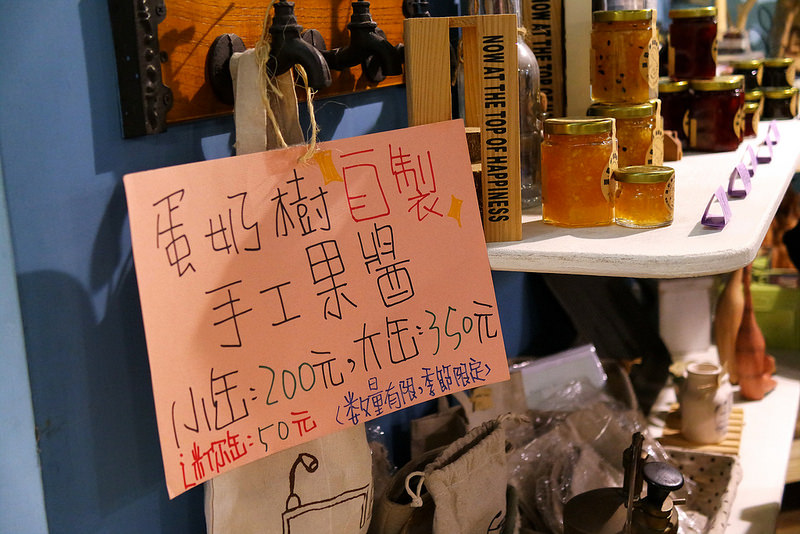 蛋奶樹自製
手工果醬
小缶:200元,大缶:350元
迷你缶:50元(数量有限,季節限定)
NOW AT THE TOP OF HAPPINESS
NOW AT THE TOP OF